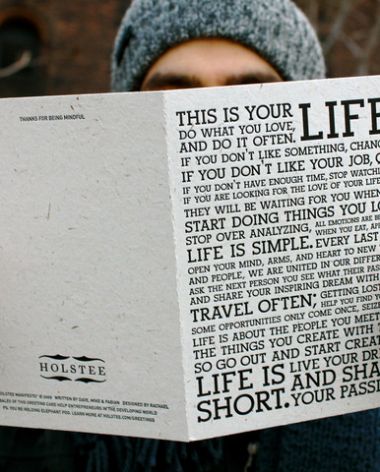 THANKS FOR BEING MINDFUL
HOLSTEE
HOLSTEE MANIFESTO © 2009 WRITTEN BY DAVE, MIKE & FABIAN DESIGNED BY RACHAEL
SALES OF THIS GREETING CARD HELP ENTREPRENEURS IN THE DEVELOPING WORLD
HOLDING ELEPHANT POO. LEARN MORE AT HOLSTEE.COM/GREETINGS
THIS IS YOUR LIFE
DO WHAT YOU LOVE,
AND DO IT OFTEN.
IF YOU DON'T LIKE SOMETHING, CHANG
IF YOU DON'T LIKE YOUR JOB,
IF YOU DON'T HAVE ENOUGH TIME, STOP WATCHI
IF YOU ARE LOOKING FOR THE LOVE OF YOUR LIFE
THEY WILL BE WAITING FOR YOU WHEN
START DOING THINGS YOU LO
STOP OVER ANALYZING, ALL EMOTIONS ARE BE
WHEN YOU EAT, APP
LIFE IS SIMPLE. EVERY LAST
OPEN YOUR MIND, ARMS, AND HEART TO NEW
AND PEOPLE, WE ARE UNITED IN OUR DIFFER
ASK THE NEXT PERSON YOU SEE WHAT THEIR PAS
AND SHARE YOUR INSPIRING DREAM WITH
TRAVEL OFTEN; GETTING LOS
HELP YOU FIND YO
SOME OPPORTUNITIES ONLY COME ONCE, SEIZ
LIFE IS ABOUT THE PEOPLE YOU MEET
THE THINGS YOU CREATE WITH
SO GO OUT AND START CREAT
LIFE IS LIVE YOUR DR
AND SHA
SHORT. YOUR PASSI